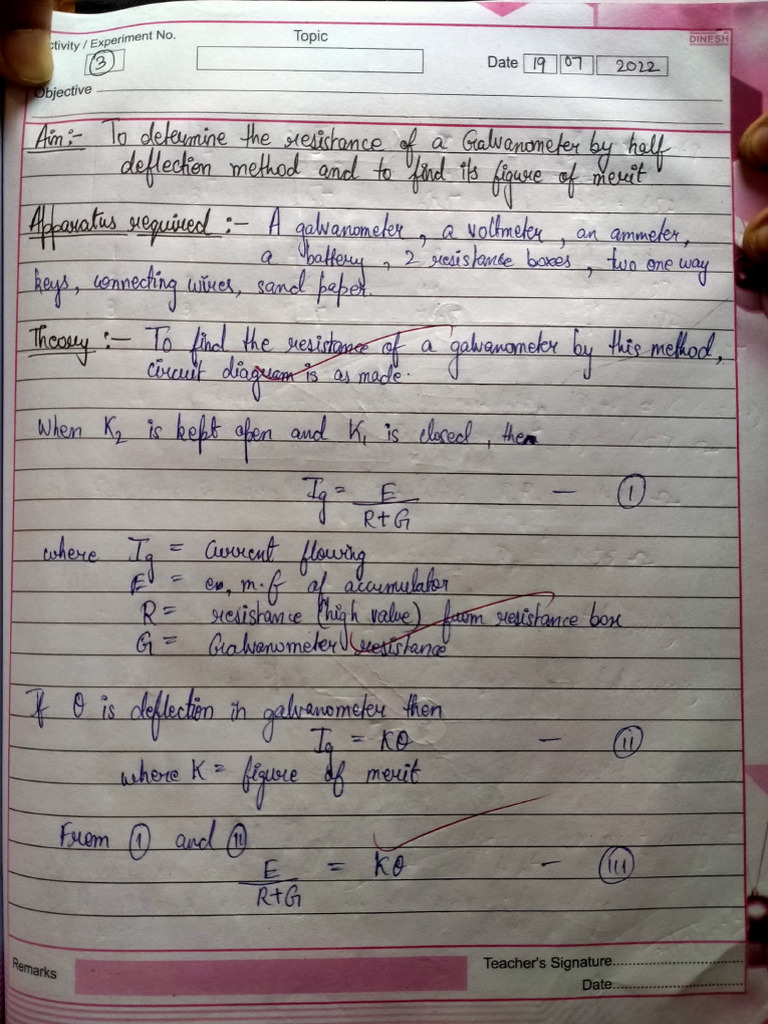 ctivity / Experiment No.
Topic
DINESH
3
Date 19 07 2022
Objective
Aim:- To determine the resistance of a Galvanometer by half
deflection method and to find its figure of merit
Apparatus required :- A galvanometer, a voltmeter, an ammeter,
a battery, 2 resistance boxes, two one way
keys, connecting wires, sand paper.
Theory :- To find the resistance of a galvanometer by this method,
circuit diagram is as made.
When K2 is kept open and K1 is closed, then
Ig = E — I
R+G
where Ig = Current flowing
E = e.m.f of accumulator
R = resistance (high value) from resistance box
G = Galvanometer resistance
If θ is deflection in galvanometer then
Ig = Kθ — II
where K = figure of merit
From I and II
E = Kθ — III
R+G
Remarks
Teacher's Signature
Date